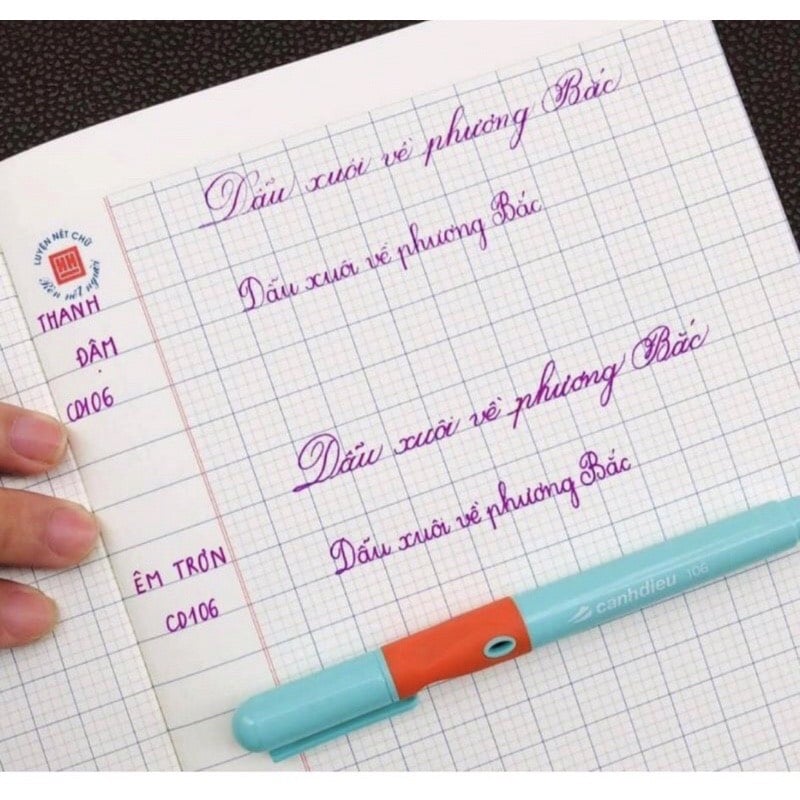 LUYỆN NẾT CHỮ
Rèn nết người
THANH
ĐẬM
CD106
Dẩu xuôi về phương Bắc
Dẩu xuôi về phương Bắc
Dẩu xuôi về phương Bắc
Dẩu xuôi về phương Bắc
ÊM TRƠN
CD106
canhdieu 106